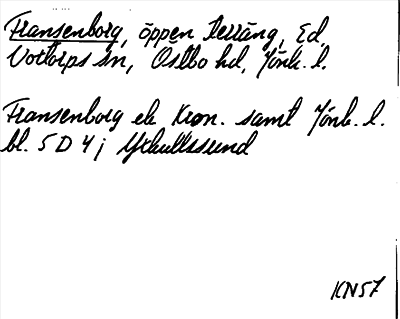 Fransenborg, öppen terräng, Ed,
Voxtorps sn, Östbo hd, Jönk. l.
Fransenborg ek Kron. samt Jönk. l.
bl. 5 D 4 j
KN57